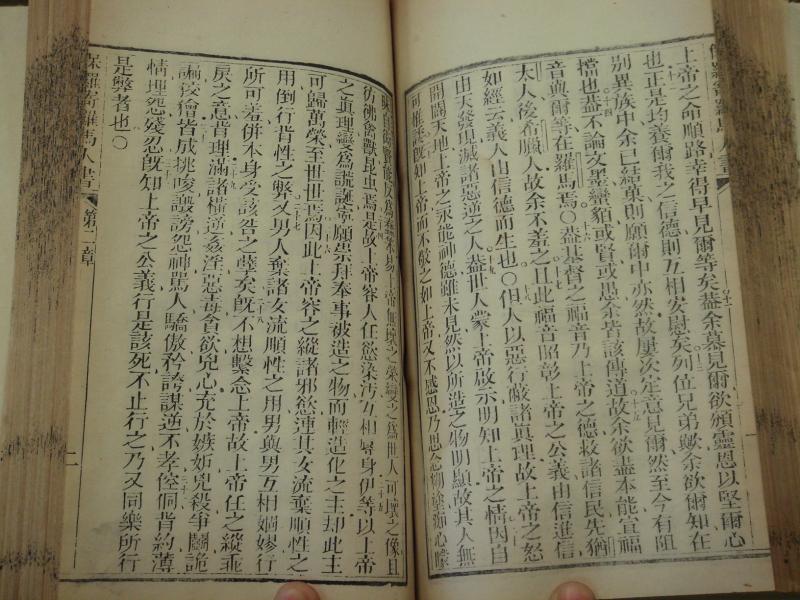 保羅寄羅馬人書
上帝之命順路幸得早見爾等矣蓋余慕見爾欲頒靈恩以堅爾心
也正是均養爾我之信德則互相安慰矣列位兄弟歟余欲爾知在
別異族中余已結菓則願爾中亦然故屢次定意見爾然至今有阻
擋也蓋不論文墨蠻貊或賢或愚余皆該傳道故余欲盡本能宣福
音與爾等在羅馬焉○蓋基督之福音乃上帝之德救諸信民先猶
太人後希臘人故余不羞之且此福音昭彰上帝之公義由信進信
如經云義人由信德而生也○但人以惡行蔽諸真理故上帝之怒
由天發見滅諸惡逆之人蓋世人蒙上帝啟示明知上帝之情因自
開闢天地上帝之永能神德雖未見然以所造之物明顯故其人無
可推諉既知上帝而不敬之如上帝又不感恩乃思念糊塗心曚
昧自稱賢能反為愚蠢易上帝無壞之榮變之為世人可壞之像且
彷彿禽獸昆虫焉是故上帝容人任慾染污互相辱身伊等以上帝
之真理變為謊誕寧願崇拜奉事被造之物而輕造化之主却此主
可歸萬榮至世世焉因此上帝容之縱諸邪慾連其女流棄順性之
用倒行背性之弊又男人棄諸女流順性之用男與男互相嫪行
所可羞併本身受該咎之孽矣既不想繫念上帝故上帝任之縱乖
戾之意背理滿諸橫逆姦淫惡毒貪欲兇心充於嫉妬兇殺爭鬭詭
譎狡獪者成挑唆毀謗怨神罵人驕傲矜誇謀逆不孝倥侗背約薄
情埋怨殘忍既知上帝之公義行是該死不止行之乃又同樂所行
是弊者也○
保羅寄羅馬人書 第二章 二